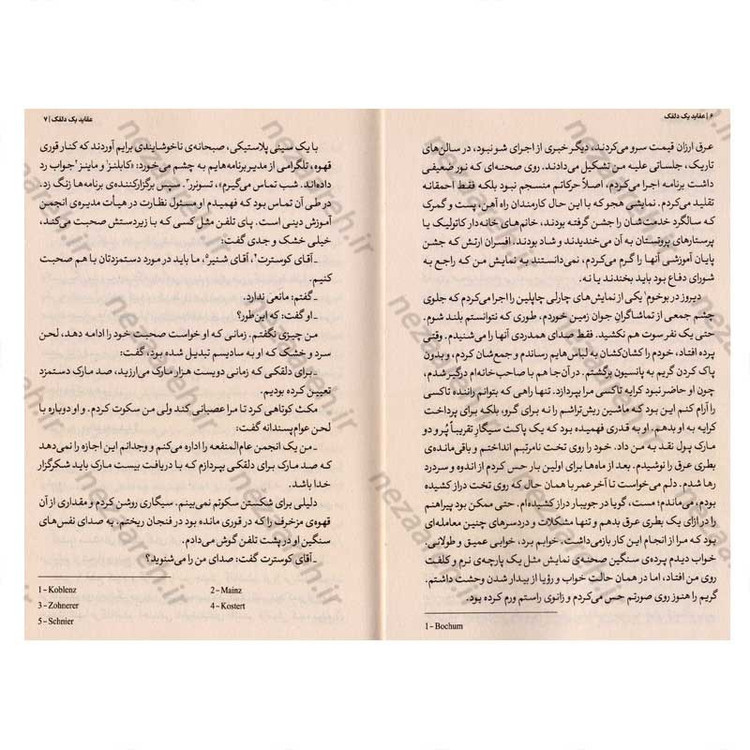 ۶ | عقاید یک دلقک
عرق ارزان قیمت سرو می‌کردند، دیگر خبری از اجرای شو نبود، در سالن‌های
تاریک، جلساتی علیه من تشکیل می‌دادند. روی صحنه‌ای که نور ضعیفی
داشت برنامه اجرا می‌کردم، اصلاً حرکاتم منسجم نبود بلکه فقط احمقانه
تقلید می‌کردم. نمایشی هجو که با این حال کارمندان راه آهن، پست و گمرک
که سالگرد خدمت‌شان را جشن گرفته بودند، خانم های خانه‌دار کاتولیک یا
پرستارهای پروتستان به آن می‌خندیدند و شاد بودند. افسران ارتش که جشن
پایان آموزشی آنها را گرم می‌کردم، نمی‌دانستند به نمایش من که راجع به
شورای دفاع بود باید بخندند یا نه.
دیروز در بوخوم¹ یکی از نمایش‌های چارلی چاپلین را اجرا می‌کردم که جلوی
چشم جمعی از تماشاگران جوان زمین خوردم، طوری که نتوانستم بلند شوم.
حتی یک نفر سوت هم نکشید. فقط صدای همدردی آنها را می‌شنیدم. وقتی
پرده افتاد، خودم را کشان‌کشان به لباس‌هایم رساندم و جمع‌شان کردم، و بدون
پاک کردن گریم به پانسیون برگشتم. در آن‌جا هم با صاحب خانه‌ام درگیر شدم،
چون او حاضر نبود کرایه تاکسی مرا بپردازد. تنها راهی که بتوانم راننده تاکسی
را آرام کنم این بود که ماشین ریش‌تراشم را نه برای گرو، بلکه برای پرداخت
کرایه به او بدهم. او به قدری فهمیده بود که یک پاکت سیگار تقریباً پُر و دو
مارک پول نقد به من داد. خود را روی تخت نامرتبم انداختم و باقی‌مانده‌ی
بطری عرق را نوشیدم. بعد از ماه‌ها برای اولین بار حس کردم از اندوه و سردرد
رها شدم. دلم می‌خواست تا آخر عمر با همان حال که روی تخت دراز کشیده
بودم، می‌ماندم؛ مست، گویا در جویبار دراز کشیده‌ام. حتی ممکن بود پیراهنم
را در ازای یک بطری عرق بدهم و تنها مشکلات و دردسرهای چنین معامله‌ای
بود که مرا از انجام این کار بازمی‌داشت. خوابم برد، خوابی عمیق و طولانی.
خواب دیدم پرده‌ی سنگین صحنه‌ی نمایش مثل یک پارچه‌ی نرم و کلفت
روی من افتاد، اما در همان حالت خواب و رؤیا از بیدار شدن وحشت داشتم.
گریم را هنوز روی صورتم حس می‌کردم و زانوی راستم ورم کرده بود.
1 – Bochum
عقاید یک دلقک | ۷
با یک سینی پلاستیکی، صبحانه‌ی ناخوشایندی برایم آوردند که کنار قوری
قهوه، تلگرامی از مدیر برنامه‌هایم به چشم می‌خورد: «کابلنز¹ و ماینز² جواب رد
داده‌اند. شب تماس می‌گیرم»، تسونرر³. سپس برگزارکننده‌ی برنامه‌ها زنگ زد.
در طی آن تماس بود که فهمیدم او مسئول نظارت در هیأت مدیره‌ی انجمن
آموزش دینی است. پای تلفن مثل کسی که با زیردستش صحبت می‌کند،
خیلی خشک و جدی گفت:
ـ آقای کوسترت⁴، آقای شنیر⁵، ما باید در مورد دستمزدتان با هم صحبت
کنیم.
ـ گفتم: مانعی ندارد.
ـ او گفت: که این‌طور؟
من چیزی نگفتم. زمانی که او خواست صحبت خود را ادامه دهد، لحن
سرد و خشک که او به سادیسم تبدیل شده بود، گفت:
ـ برای دلقکی که زمانی دویست هزار مارک می‌ارزید، صد مارک دستمزد
تعیین کرده بودیم.
مکث کوتاهی کرد تا مرا عصبانی کند ولی من سکوت کردم. و او دوباره با
لحن عوام‌پسندانه گفت:
ـ من یک انجمن عام‌المنفعه را اداره می‌کنم و وجدانم این اجازه را نمی‌دهد
که صد مارک برای دلقکی بپردازم که با دریافت بیست مارک باید شکرگزار
خدا باشد.
دلیلی برای شکستن سکوتم نمی‌بینم. سیگاری روشن کردم و مقداری از آن
قهوه‌ی مزخرف را که در قوری مانده بود در فنجان ریختم. به صدای نفس‌های
سنگین او در پشت تلفن گوش می‌دادم.
ـ آقای کوسترت گفت: صدای من را می‌شنوید؟
1 – Koblenz 2 – Mainz
3 – Zohnerer 4 – Kostert
5 – Schnier
nezaareh.ir